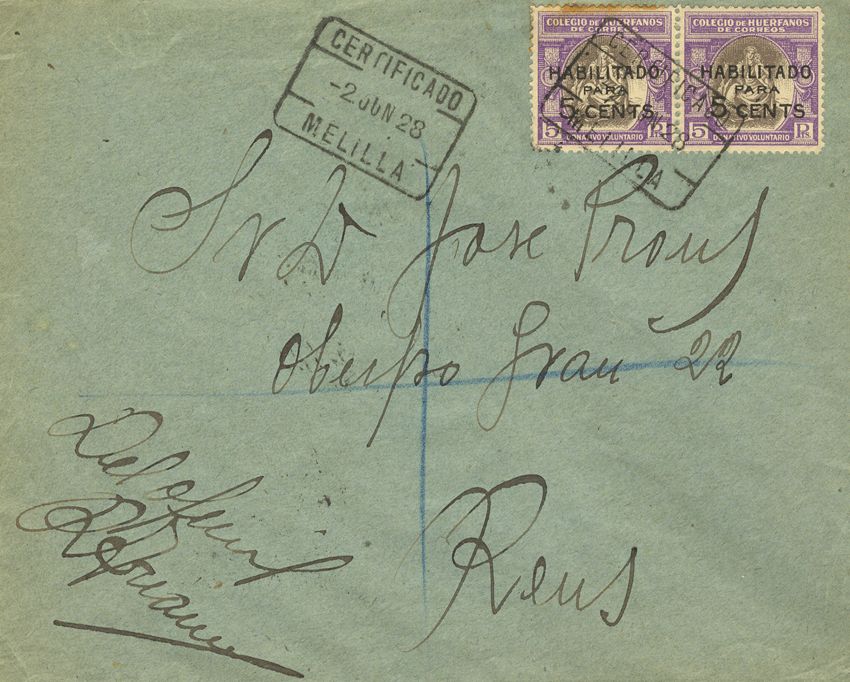 CERTIFICADO
-2 JUN 28
MELILLA
COLEGIO DE HUERFANOS
DE CORREOS
HABILITADO
PARA
5 CENTS
5 DONATIVO VOLUNTARIO P.
COLEGIO DE HUERFANOS
DE CORREOS
HABILITADO
PARA
5 CENTS
5 DONATIVO VOLUNTARIO P.
CERTIFICADO
28
MELILLA
Sr D Jose Prous
Obispo Grau 22
Reus